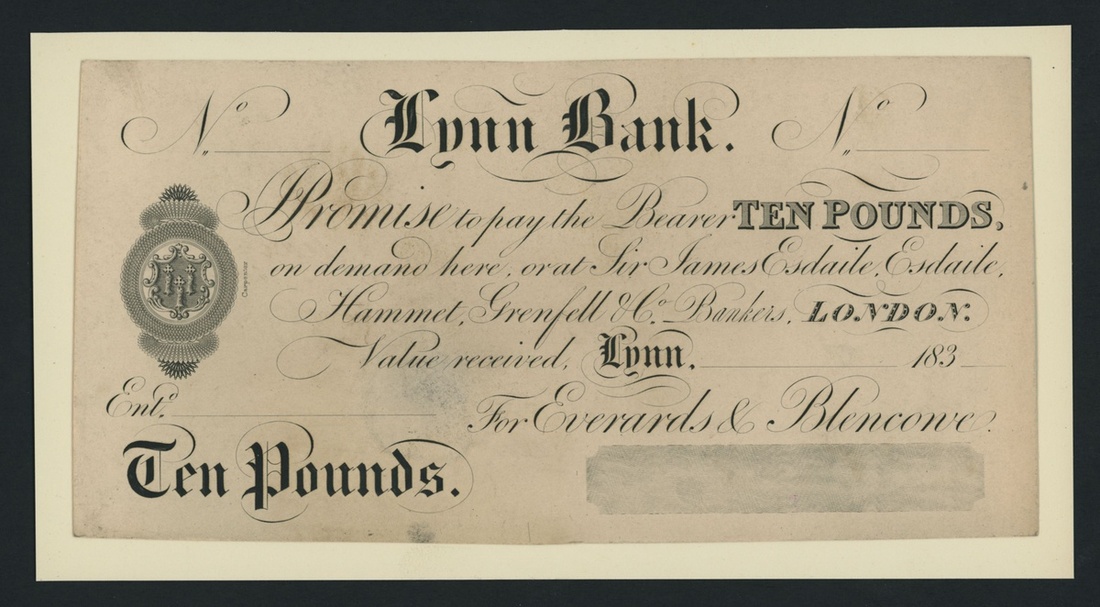 No Lynn Bank. No
I Promise to pay the Bearer TEN POUNDS,
on demand here, or at Sir James Esdaile, Esdaile,
Hammet, Grenfell & Co. Bankers, LONDON.
Value received, Lynn. 183
Entd.
For Everards & Blencowe.
Ten Pounds.